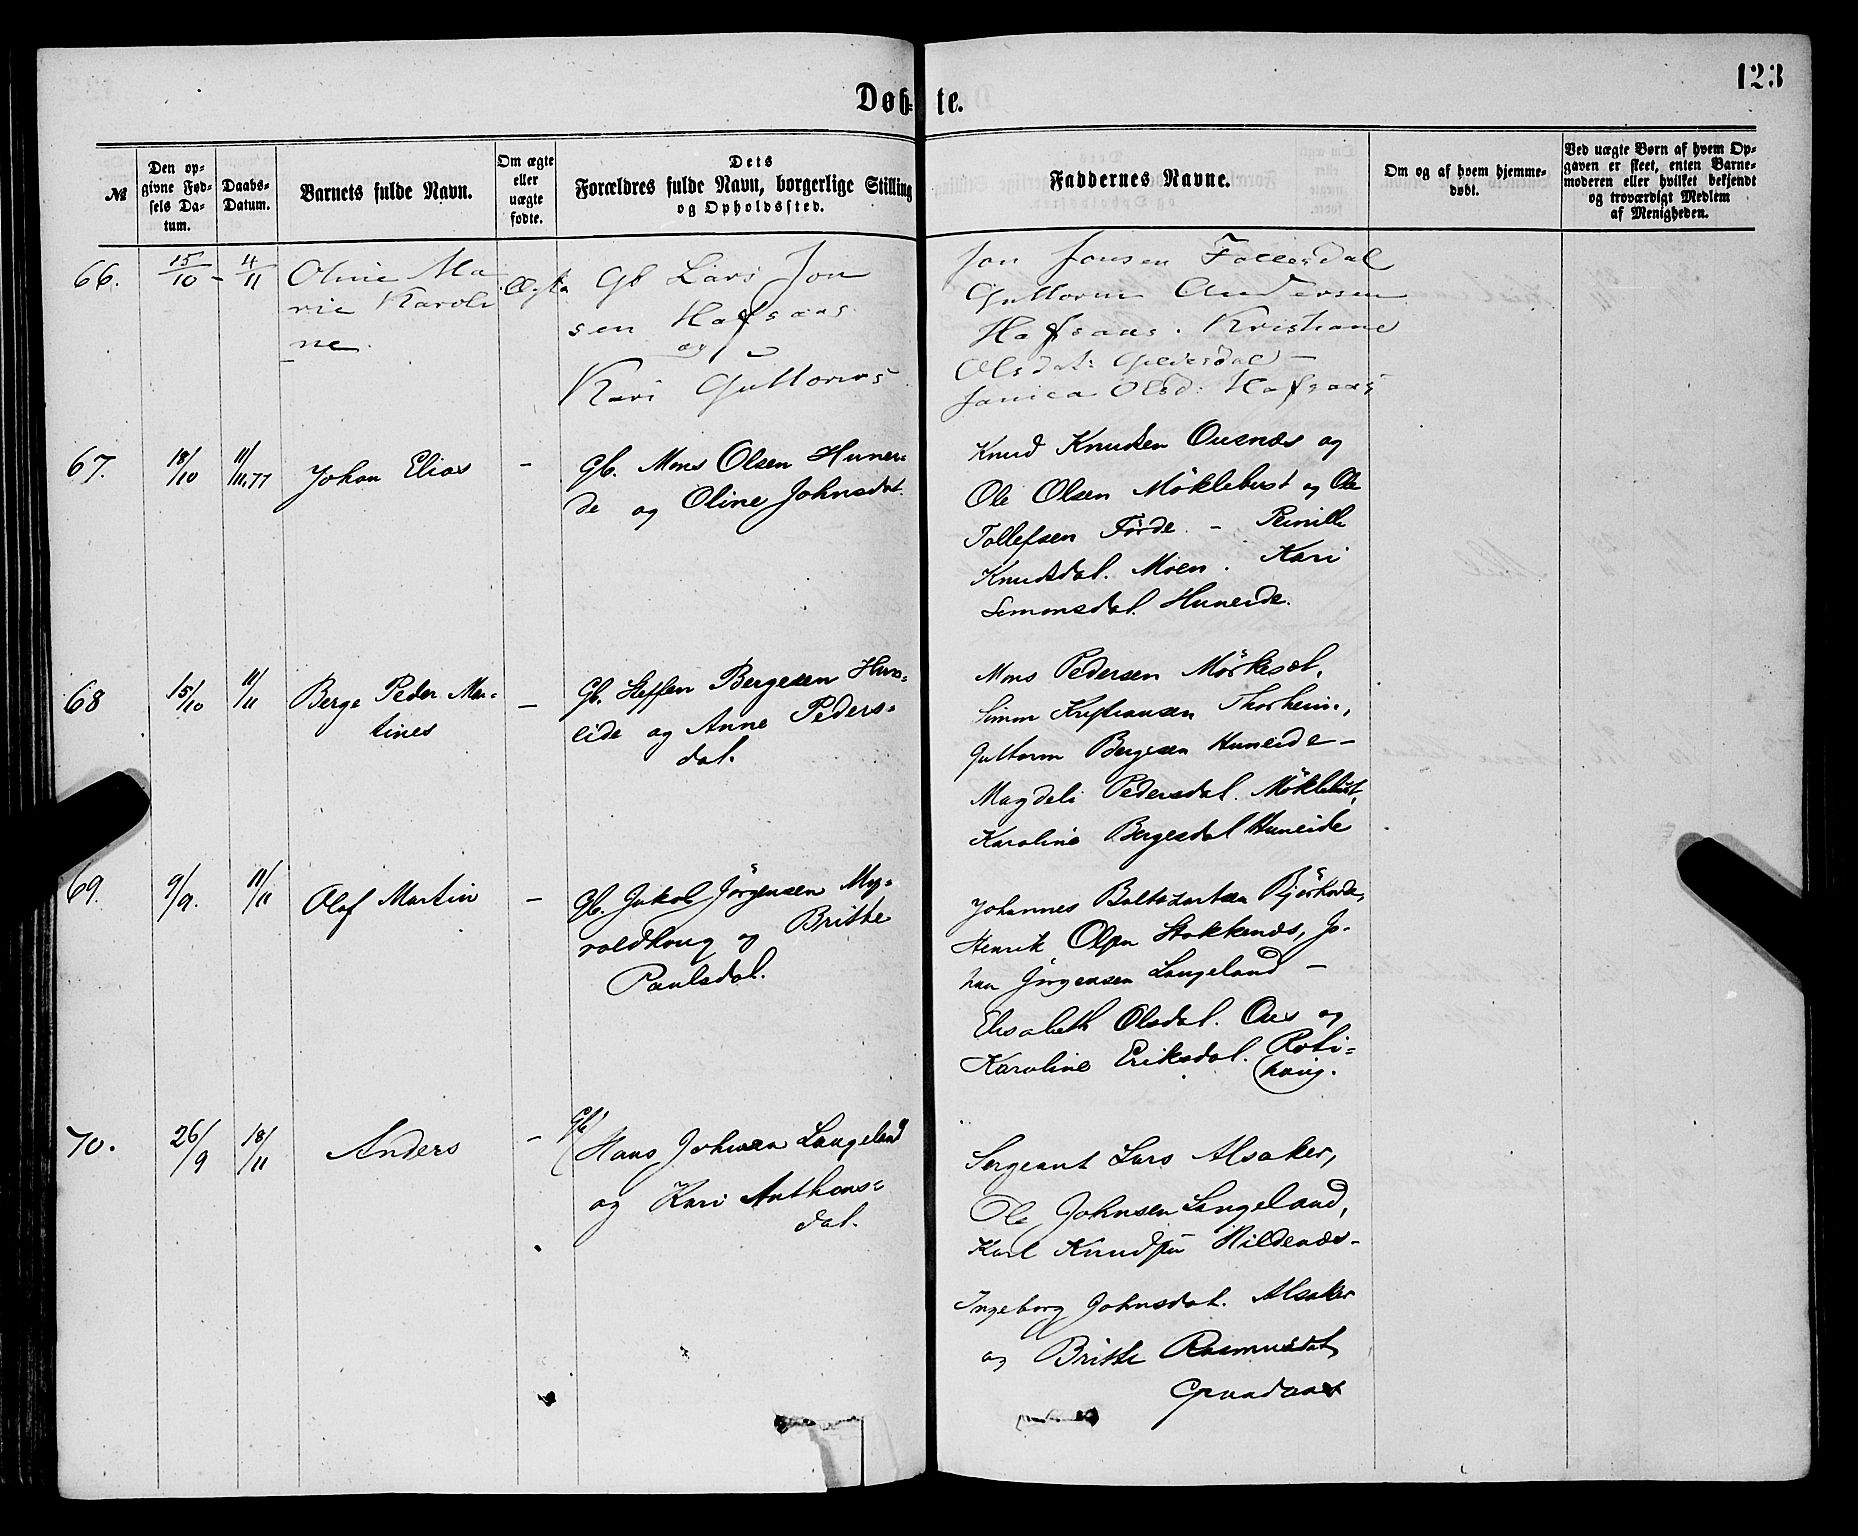 123
Døb- te.
№
Den op-
givne Fød-
sels Da-
tum.
Daabs-
Datum.
Barnets fulde Navn.
Om ægte
eller
uægte
fødte.
Dets
Forældres fulde Navn, borgerlige Stilling
og Opholdssted.
Faddernes Navne.
Om og af hvem hjemme-
døbt.
Ved uægte Børn af hvem Op-
gaven er skeet, enten Barne-
moderen eller hvilket bekjendt
og troværdigt Medlem
af Menigheden.
66.
15/10 - 4/11
Oline Ma
rie Karoli
ne.
Ægte
Gb Lars Jon
sen Hafsaas
og
Kari Guttorms
Jon Jonsen
Guttorm Andersen
Hafsaas. Kristiane
Olsdat:
Olsd: Hafsaas
67.
18/10
11/11.77
Johan Elias
-
Gb. Mons Olsen Hunei-
de og Oline Johnsdat.
Knud Knudsen Ousnæs og
Ole Olsen Möklebust og Ole
Tollefsen Förde. - Pernille
Knudsdat. Moen. Kari
Simonsdat. Huneide.
68
15/10
11/11
Berge Peder Mar-
tines
-
Gb. Steffen Bergesen Hun-
eide og Anne Peders-
dat.
Mons Pedersen Mörkesæt,
Simon Kristiansen Thorheim,
Guttorm Bergesen Huneide -
Magdeli Pedersdat. Möklebust,
Karoline Bergesdat Huneide
69.
9/9.
11/11
Olaf Martin
-
Gb. Jakob Jörgensen My-
roldhoug og Britte
Paulsdat.
Johannes Baltazartsen
Henrik Olsen Stokkenæs, Jo-
han Jörgensen Langeland -
Elisabeth Olsdat. Aes og
Karoline Eriksdat. Roti-
houg.
70.
26/9
18/11
Anders
-
Gb.
Hans Johnsen Langeland
og Kari Anthons-
dat.
Sergeant Lars Alsaker,
Ole Johnsen Langeland,
Karl Knudsen Hildenæs -
Ingeborg Johnsdat. Alsaker
og Britte Rasmusdat,